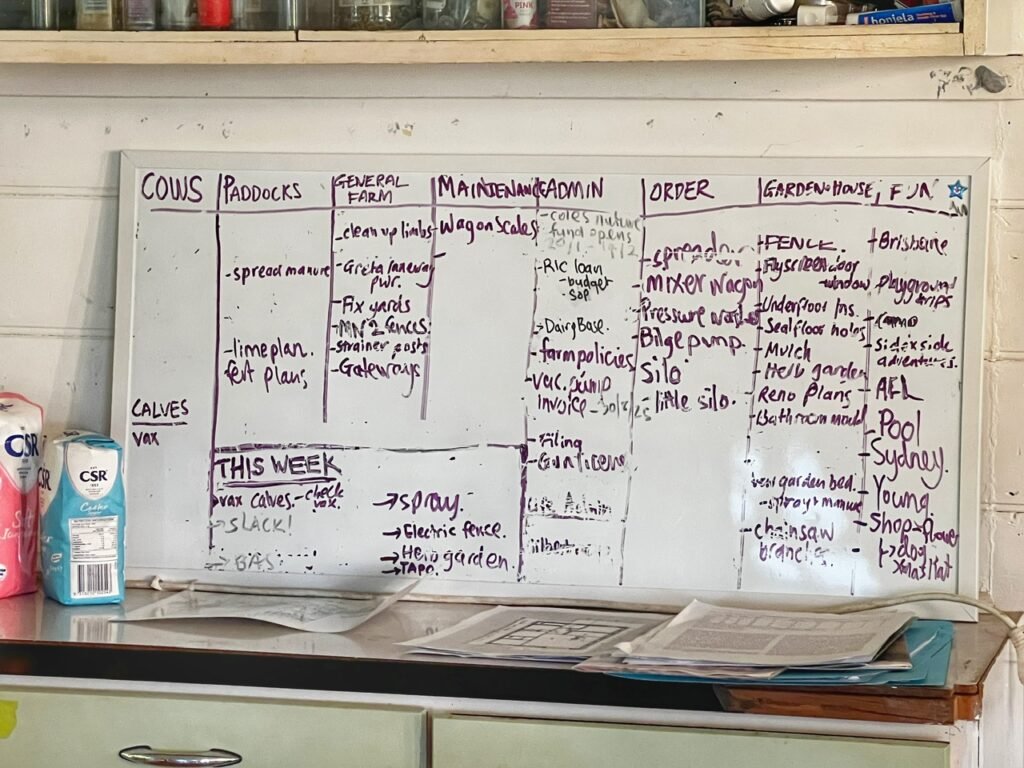 PINK
bonjela
COWS
CALVES
vax
PADDOCKS
-spread manure
-limeplan.
fert plans
GENERAL
FARM
-clean up limbs
-Greta laneway
pwr.
-Fix yards
-MN 2 fences
-strainer posts
-Gateways
MAINTENANCE
-Wagon Scales
THIS WEEK
vax calves.-check
vax.
→SLACK!
→BAS
→spray.
→Electric fence.
→Herb garden.
→TAPO.
ADMIN
-coles nurture
fund opens
-RIC loan
-budget
SOP
→DairyBase.
-farm policies
-vac. pump
invoice -30/8/25
-Filing
-Gun licens
Life Admin
ORDER
-spreader
-mixer wagon
Pressure washer
Bilge pump.
Silo
-little silo.
GARDEN+HOUSE,
-FENCE.
Flyscreen door
-window
-Underfloor Ins.
-Seal floor holes
-Mulch
-Herb garden
Reno Plans
-Bathroom model
near garden bed.
-spray+manure
-chainsaw
branches.
FUN
-Brisbane
-playground
trips
-Camo
-Side x side
adventures.
-AFL
-Pool
-Sydney.
-Young.
-Shop-flower
↳dog
xmas Hat
CSR
CSR
Caster